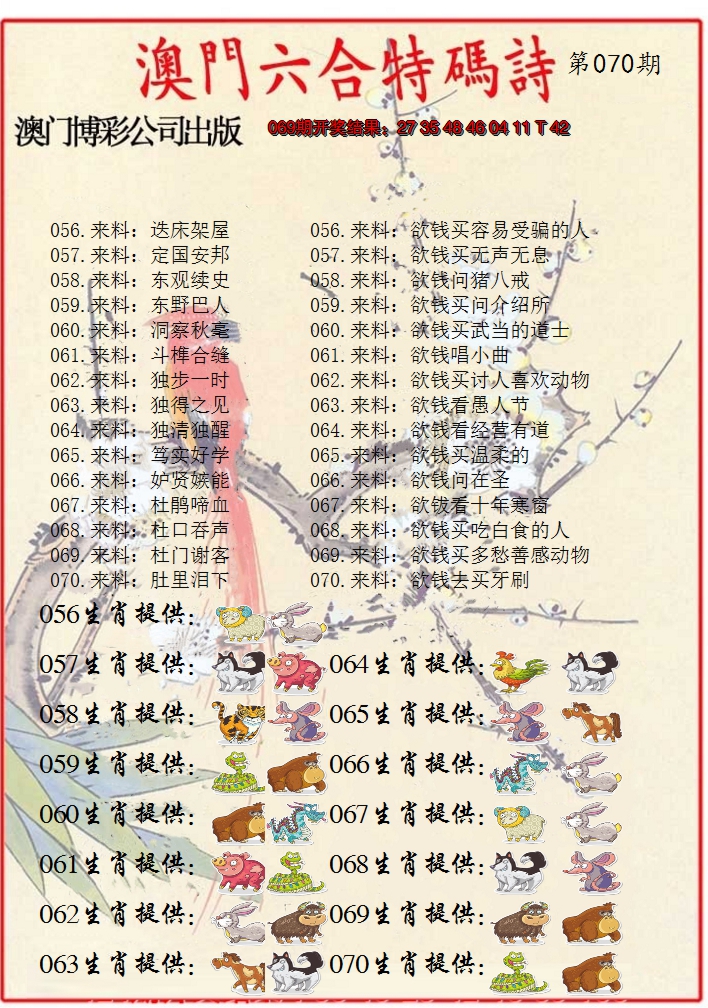 澳門六合特碼詩 第070期
澳门博彩公司出版 069期开奖结果：27 35 48 46 04 11 T 42
056.来料：迭床架屋 056.来料：欲钱买容易受骗的人
057.来料：定国安邦 057.来料：欲钱买无声无息
058.来料：东观续史 058.来料：欲钱问猪八戒
059.来料：东野巴人 059.来料：欲钱买问介绍所
060.来料：洞察秋毫 060.来料：欲钱买武当的道士
061.来料：斗榫合缝 061.来料：欲钱唱小曲
062.来料：独步一时 062.来料：欲钱买讨人喜欢动物
063.来料：独得之见 063.来料：欲钱看愚人节
064.来料：独清独醒 064.来料：欲钱看经营有道
065.来料：笃实好学 065.来料：欲钱买温柔的
066.来料：妒贤嫉能 066.来料：欲钱问在圣
067.来料：杜鹃啼血 067.来料：欲钹看十年寒窗
068.来料：杜口吞声 068.来料：欲钱买吃白食的人
069.来料：杜门谢客 069.来料：欲钱买多愁善感动物
070.来料：肚里泪下 070.来料：欲钱去买牙刷
056生肖提供：
057生肖提供： 064生肖提供：
058生肖提供： 065生肖提供：
059生肖提供： 066生肖提供：
060生肖提供： 067生肖提供：
061生肖提供： 068生肖提供：
062生肖提供： 069生肖提供：
063生肖提供： 070生肖提供：